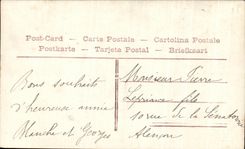 Post-Card – Carte Postale – Cartolina Postale
Postkarte – Tarjeta Postal – Briefkaart
Bons souhaits
d'heureuse année
Blanche et Georges
Monsieur Pierre
Leprince fils
10 rue de la Sénatorerie
Alençon